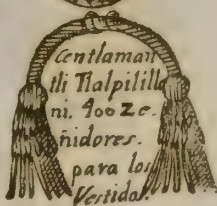 Centlaman
tli Tlalpilill
ni. 400 Ze.
ñidores.
para los
Vestidos.